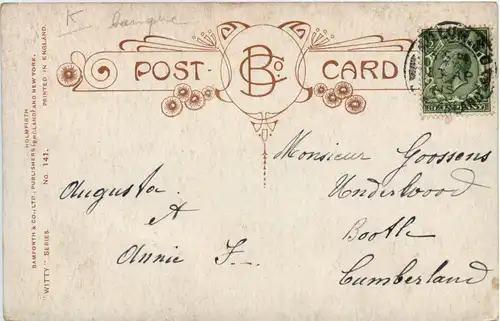 K
POST Bo CARD
Monsieur Goossens
Underwood
Bootle
Cumberland
Augusta.
A
Annie F.
BAMFORTH & CO., LTD., PUBLISHERS (HOLMFIRTH ENGLAND) AND NEW YORK.
"WITTY" SERIES. No. 141. PRINTED IN ENGLAND.